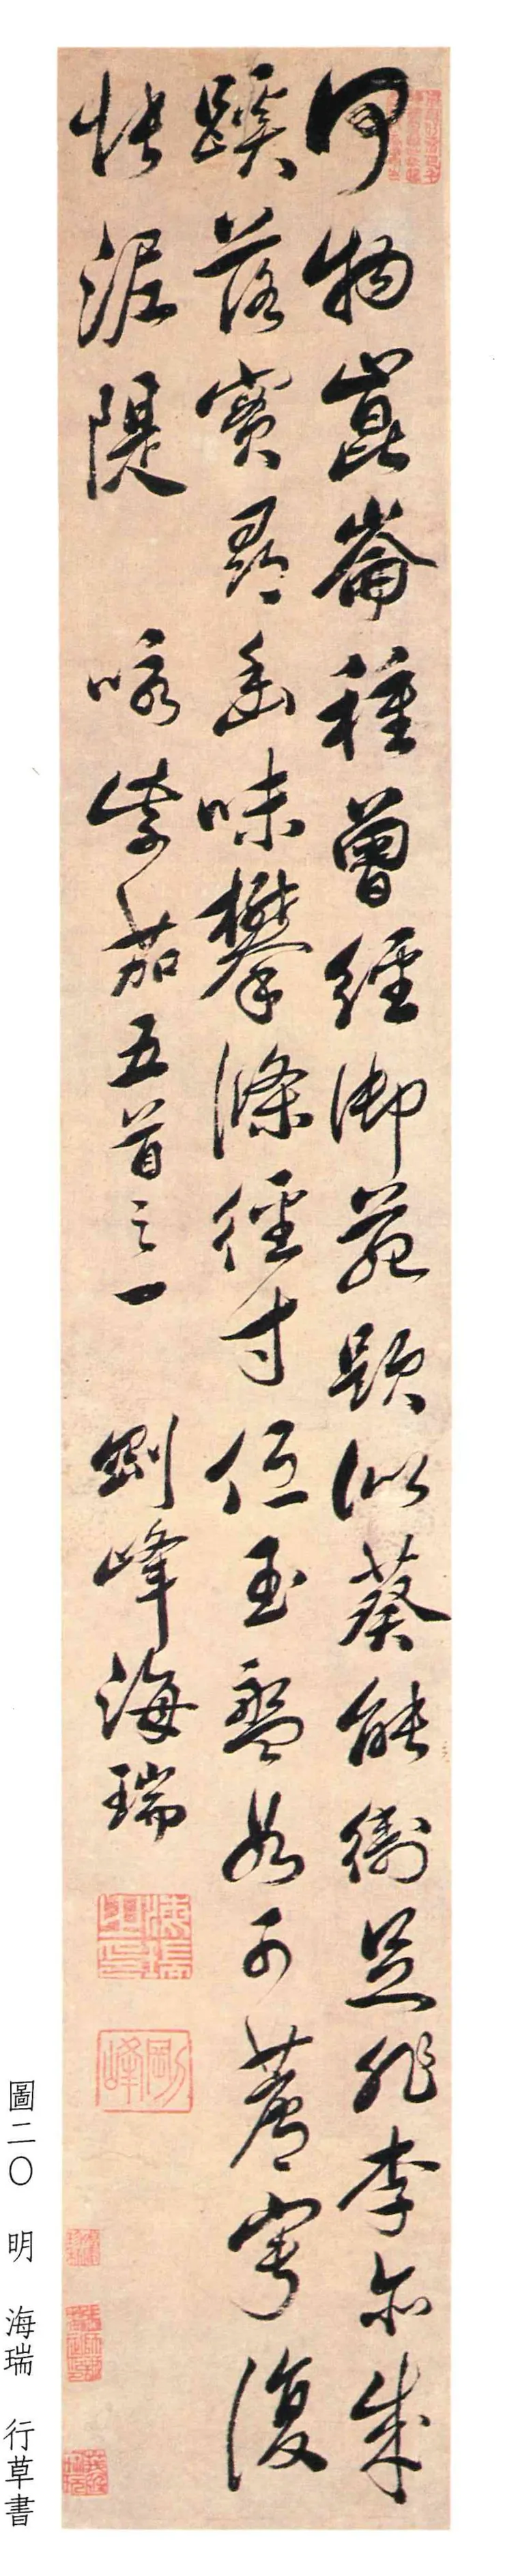 何物崑崙種曾經御苑題似葵能衛足非李亦成
蹊落實尋幽味攀條徑寸低玉盤如可薦寧復
怯泥隄 咏紫茄五首之一 剛峰海瑞
剛峰
圖二〇 明 海瑞 行草書